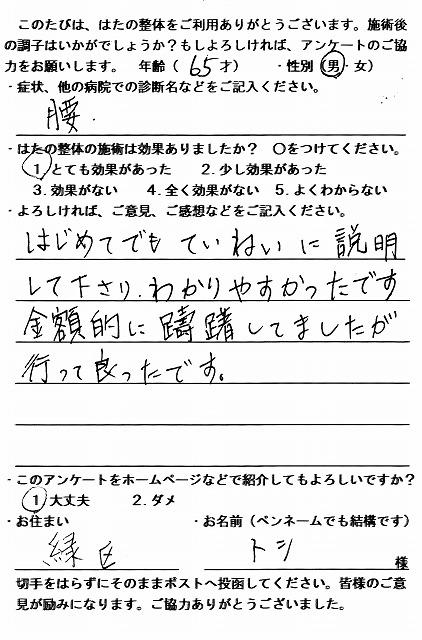 このたびは、はたの整体をご利用ありがとうございます。施術後
の調子はいかがでしょうか？もしよろしければ、アンケートのご協
力をお願いします。 年齢（ 65才） ・性別（男・女）
・症状、他の病院での診断名などをご記入ください。
腰.
・はたの整体の施術は効果ありましたか？ 〇をつけてください。
1.とても効果があった 2.少し効果があった
3.効果がない 4.全く効果がない 5.よくわからない
・よろしければ、ご意見、ご感想などをご記入ください。
はじめてでもていねいに説明
して下さり.わかりやすかったです
金額的に躊躇してましたが
行って良ったです。
・このアンケートをホームページなどで紹介してもよろしいですか？
1.大丈夫 2.ダメ
・お住まい ・お名前（ペンネームでも結構です）
緑区 トシ 様
切手をはらずにそのままポストへ投函してください。皆様のご意
見が励みになります。ご協力ありがとうございました。